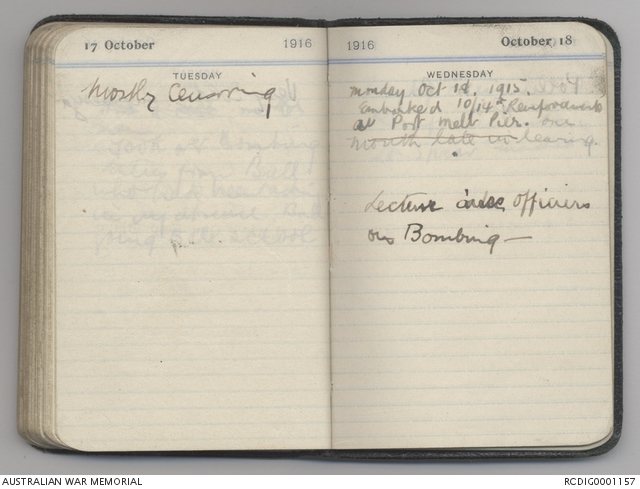 17 October 1916
TUESDAY
Mostly Censoring
1916 October 18
WEDNESDAY
Monday Oct 18. 1915.
Embarked 10/14th Reinforcements
at Port Melb Pier. one
month late in leaving.
Lecture Officers
on Bombing —
AUSTRALIAN WAR MEMORIAL
RCDIG0001157